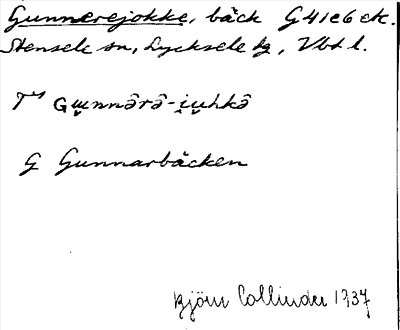 Gunnerejokke, bäck G4 1e6 ek.
Stensele sn, Lycksele lg, Vbtl.
Gɯnnə̂rə̂-i̯u̯hkə̂
G Gunnarbäcken
Björn Collinder 1937